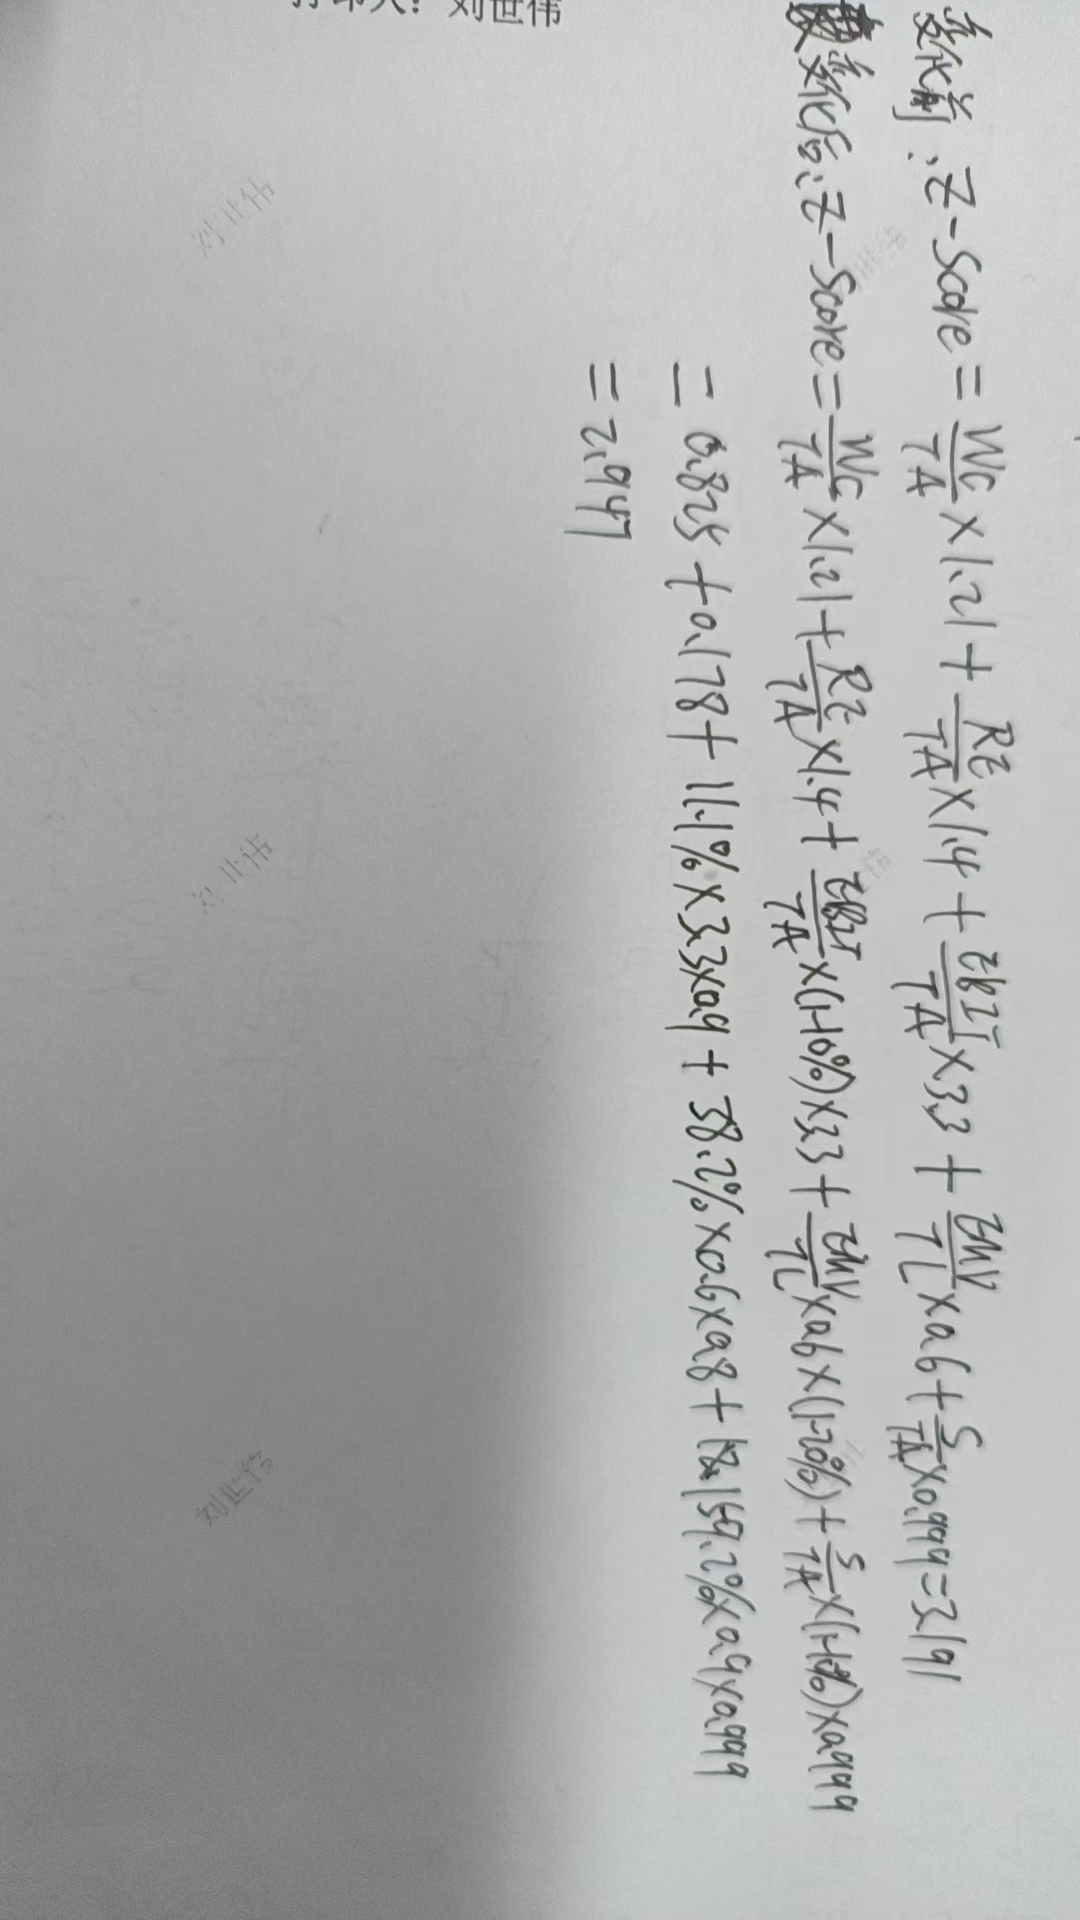 变化前：Z-Score = WC/TA ×1.21 + RE/TA ×1.4 + EBIT/TA ×3.3 + EMV/TL ×0.6 + S/TA ×0.999 = 3.191
变化后：Z-Score = WC/TA ×1.21 + RE/TA ×1.4 + EBIT/TA ×(1-10%)×3.3 + EMV/TL ×0.6×(1-20%) + S/TA ×(1-10%)×0.999
= 0.825 + 0.178 + 11.1%×3.3×0.9 + 38.2%×0.6×0.8 + 159.2%×0.9×0.999
= 2.947
打印人：刘世伟
刘世伟
刘世伟
刘世伟